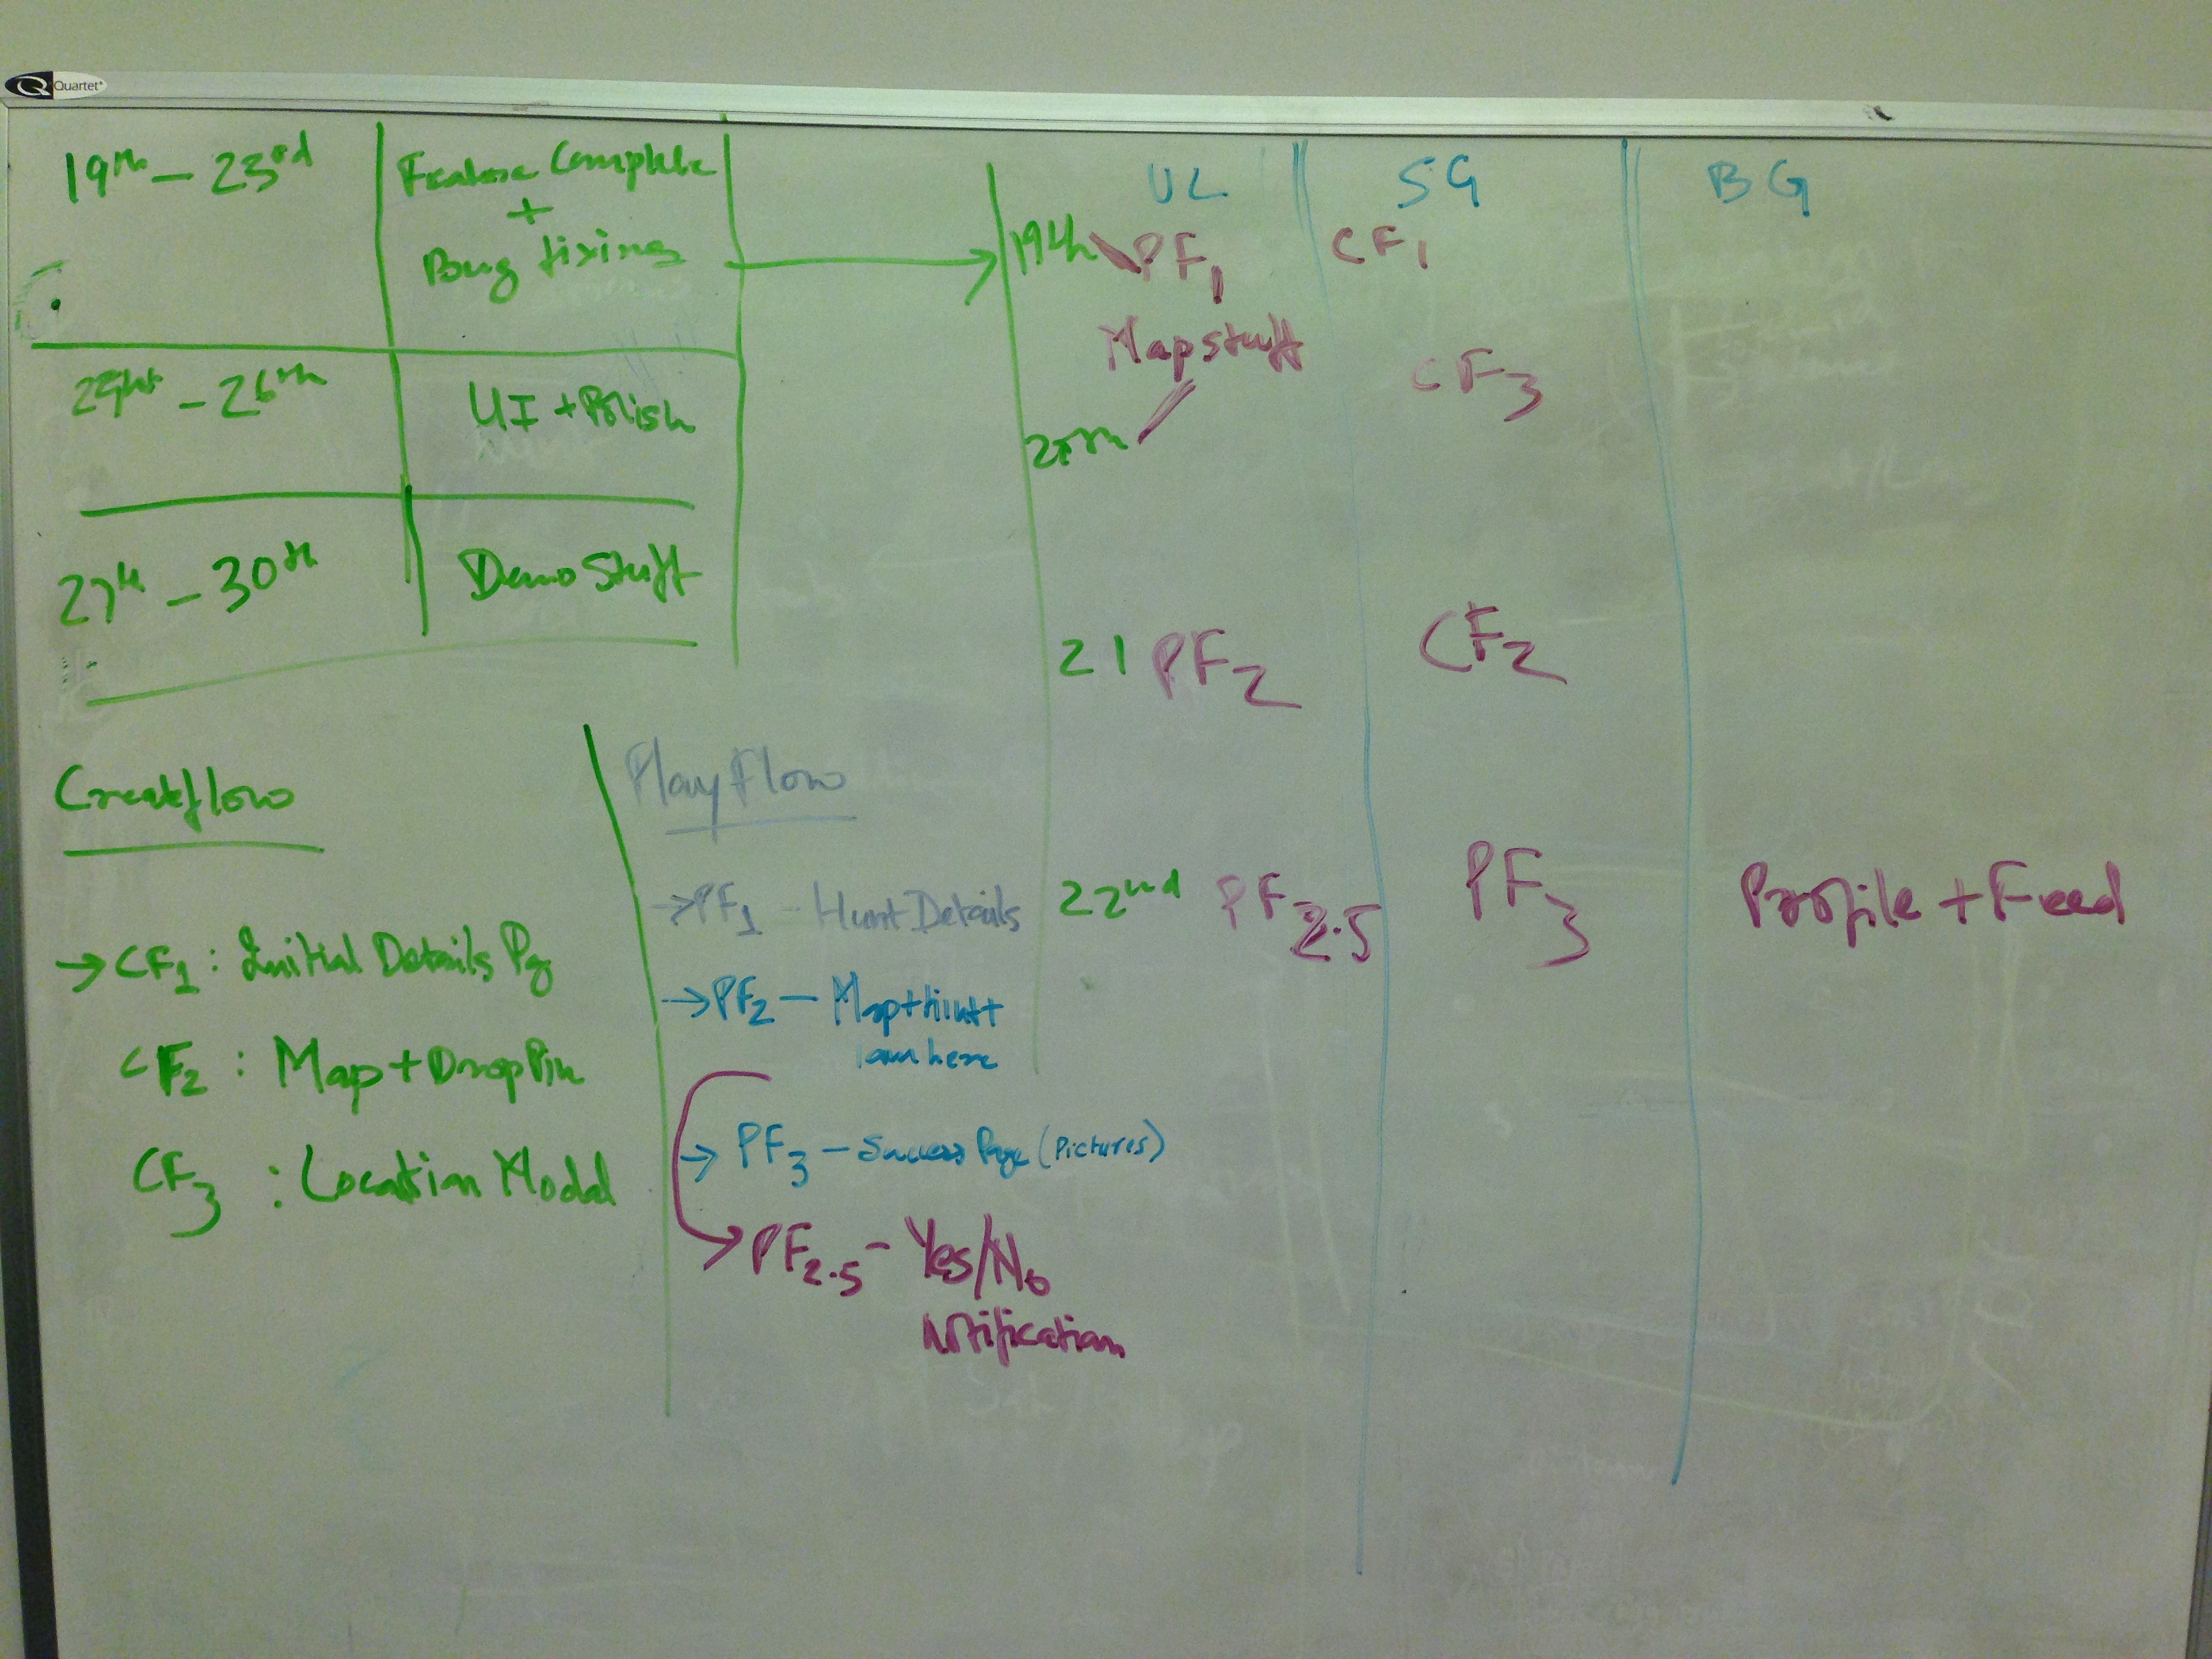 Quartet
19th - 23rd
Feature Complete
+
Bug fixing
- 26th
UI + Polish
27th - 30th
Demo Stuff
UL
SG
BG
19th PF1
CF1
Map stuff
CF3
21 PF2
CF2
22nd PF2.5
PF3
Profile + Feed
Createflow
→ CF1 : Initial Details Pg
CF2 : Map + Drop Pin
CF3 : Location Modal
Play Flow
→ PF1 - Hunt Details
→ PF2 - Map + Hint +
I am here
→ PF3 - Success Page (Pictures)
→ PF2.5 - Yes/No
Notification